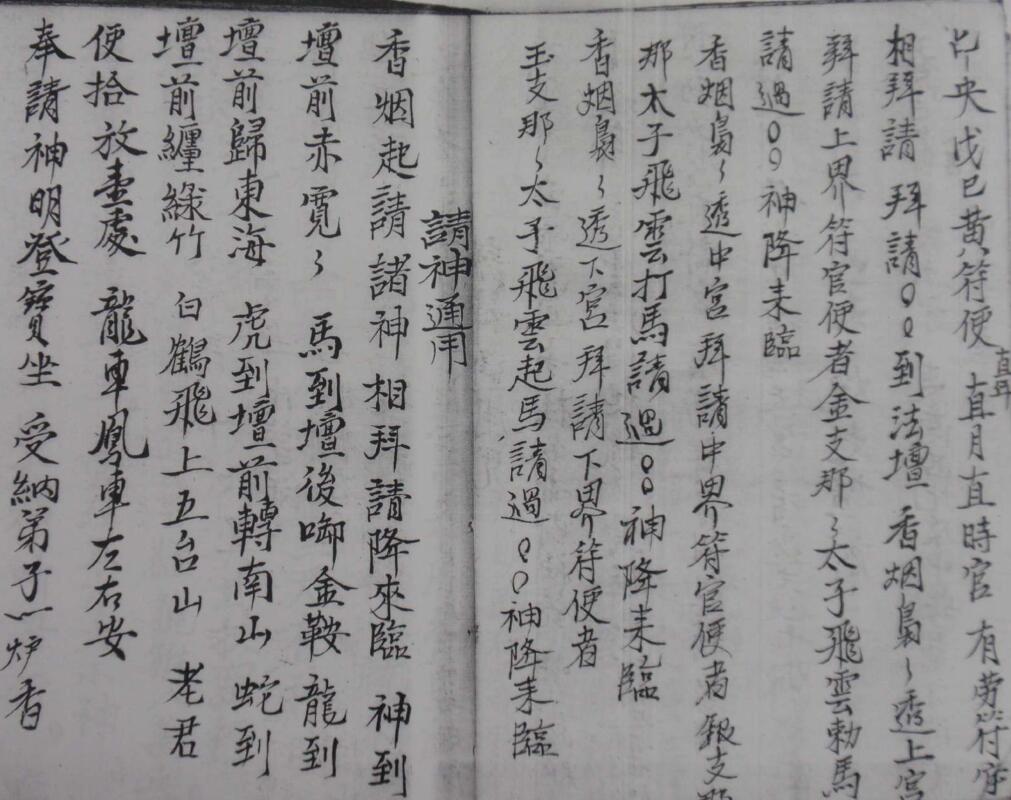 中央戊己黄符便 直年 直月直時官 有劳符官
相拜請 拜請〇〇到法壇 香烟裊〻透上宫
拜請上界符官便者金支那〻太子飛雲勅馬
請過〇〇神降来臨
香烟裊〻透中宫拜請中界符官便者銀支那
那太子飛雲打馬請過〇〇神降来臨
香烟裊〻透下宫拜請下界符便者
玉支那〻太子飛雲起馬請過〇〇神降来臨
請神通用
香烟起請諸神相拜請降來臨 神到
壇前赤寛〻 馬到壇後啣金鞍 龍到
壇前歸東海 虎到壇前轉南山 蛇到
壇前纏綠竹 白鶴飛上五台山 老君
便拾放壺處 龍車鳳車左右安
奉請神明登寳坐 受納弟子一炉香